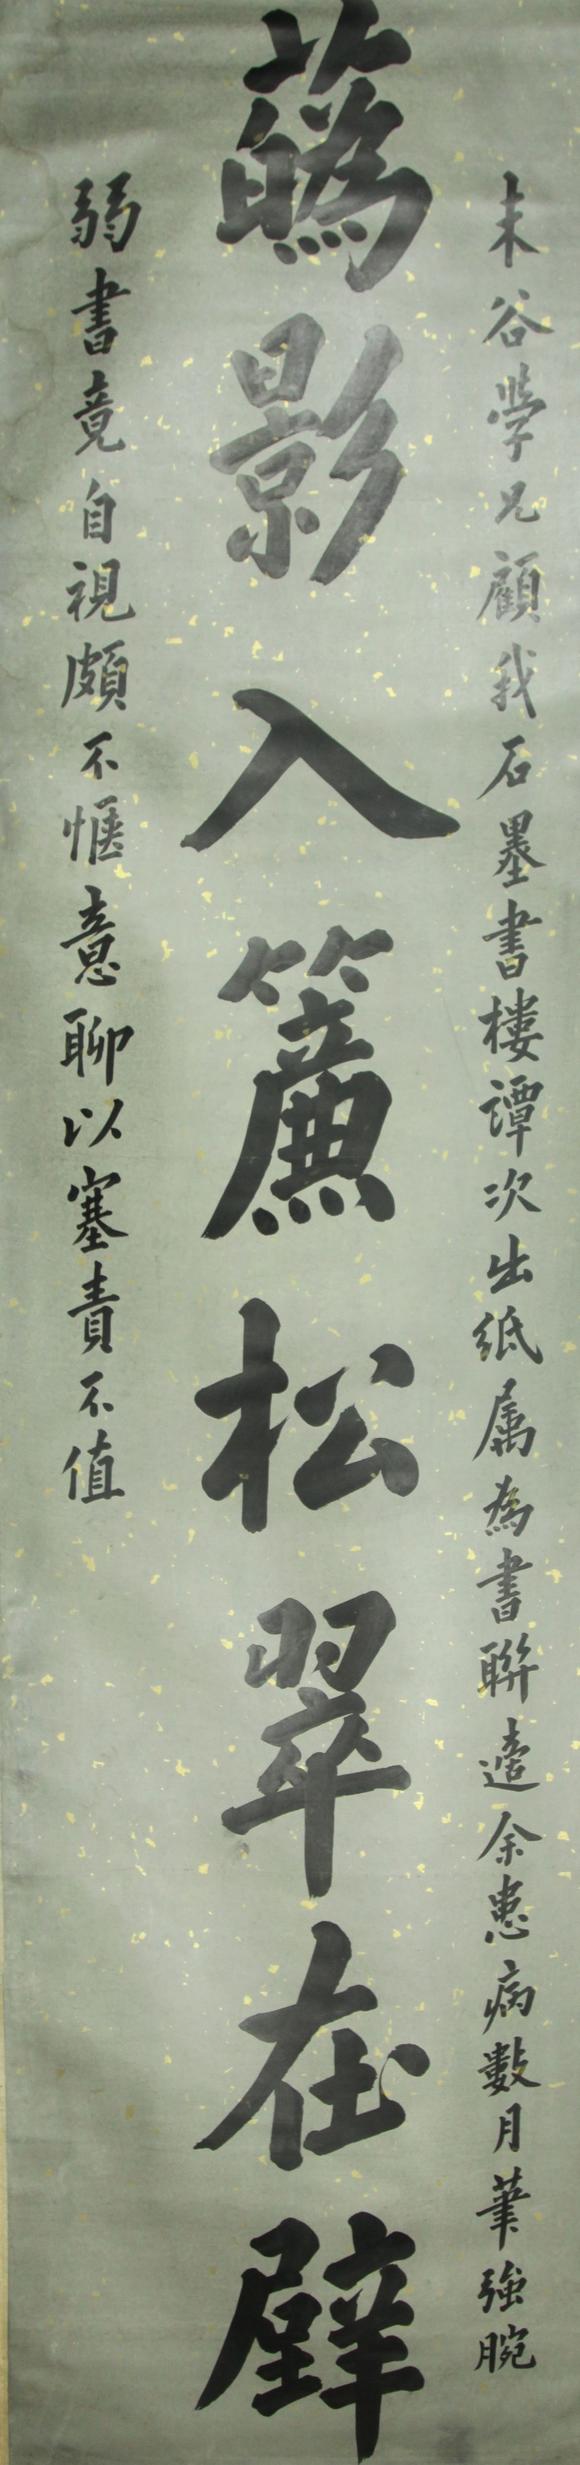 未谷學兄顧我石墨書樓譚次出紙属為書聯適余患病數月筆強腕
蘤影入簾松翠在壁
弱書竟自視頗不愜意聊以塞責不值